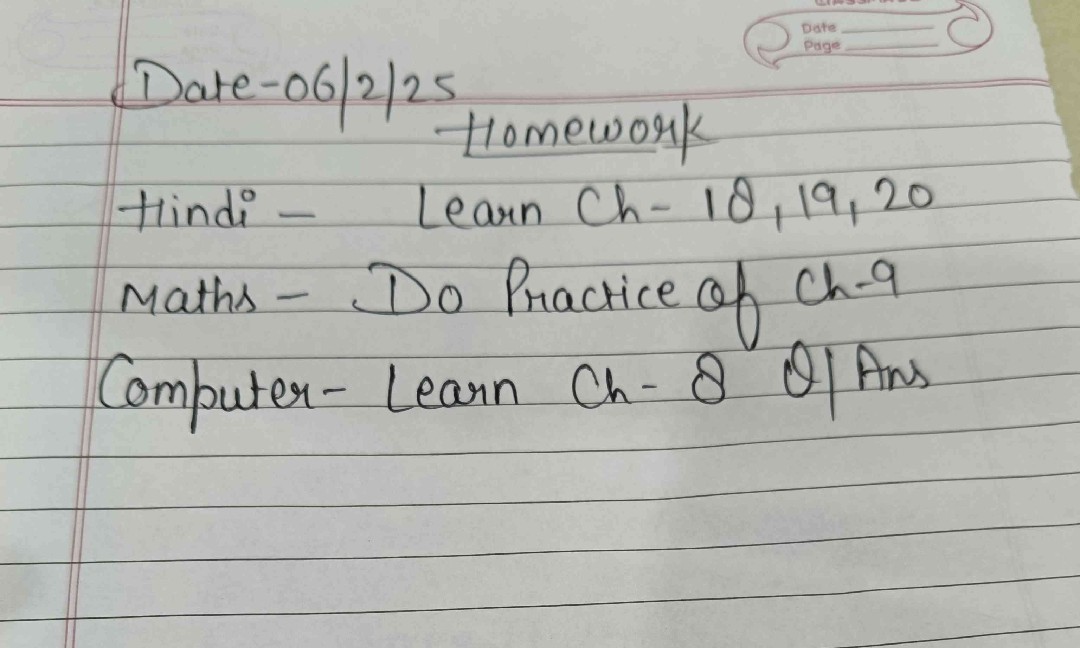 Date
Page
Date-06/2/25
Homework
Hindi - Learn Ch- 18, 19, 20
Maths - Do Practice of Ch-9
Computer- Learn Ch- 8 Q/Ans